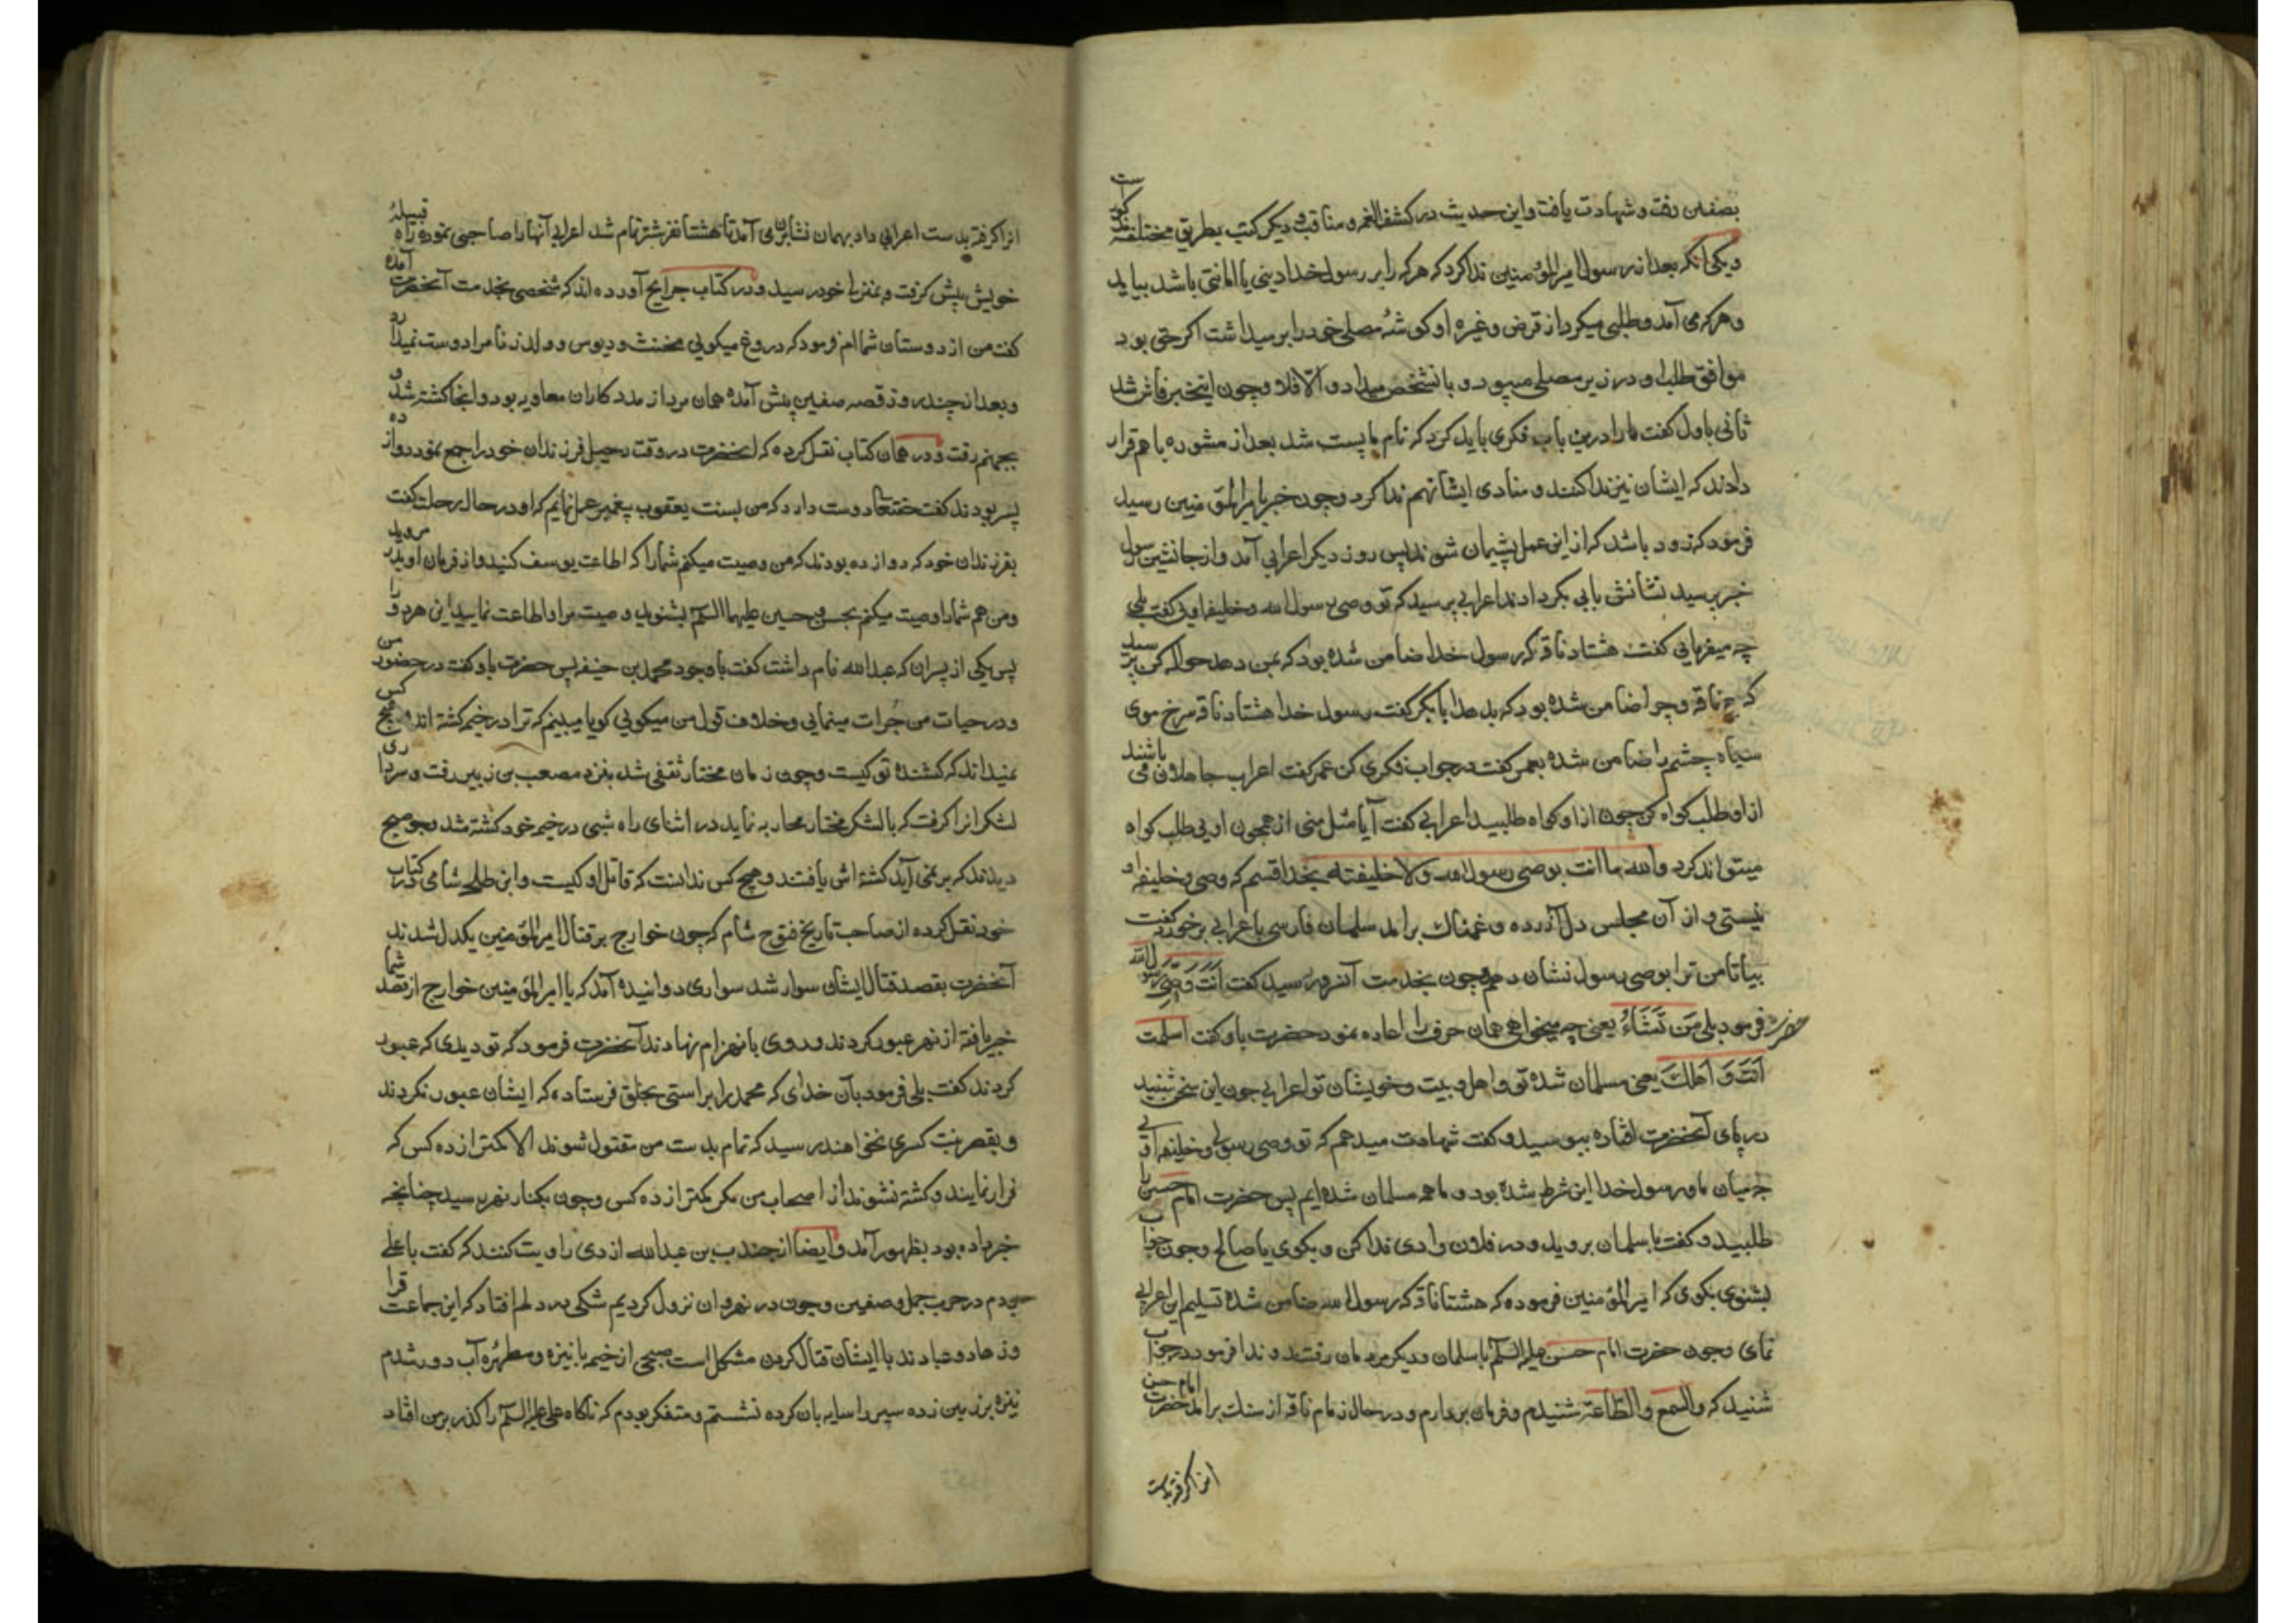 بصفین رفت و شهادت یافت و این حدیث در کشف الغمه و مناقب و دیکر کتب بطریق مختلفه مذکور است
و یکی آنکه بعد از رسول امیرالمؤمنین ندا کرد که هر که را بر رسول خدا دینی یا امانتی باشد بیاید
و هر که می آمد و طلبی میکرد از قرض و غیره او کوشهٔ مصلی خود را بر میداشت اکر حتی بود
موافق طلب او در زیر مصلی میبود و بانشخص میداد و الا فلا و چون اینخبر فاش شد
ثانی باول کفت ما را درین باب فکری باید کرد که نام ما پست شد بعد از مشوره با هم قرار
دادند که ایشان نیز ندا کنند و منادی ایشان هم ندا کرد و چون خبر بامیرالمؤمنین رسید
فرمود که زود باشد که از این عمل پشیمان شوند پس روز دیکر اعرابی آمد و از جانشین رسول
خبر پرسید نشانش بابی بکر دادند اعرابی پرسید که تو وصی رسول الله و خلیفه اویی کفت بلی
چه میفرمایی کفت هشتاد ناقه که رسول خدا ضامن شده بود که بمن دهد حواله کن پرسید
که چه ناقه و چرا ضامن شده بود که بدهد ابابکر کفت رسول خدا هشتاد ناقه سرخ موی
سیاه چشم را ضامن شده بعمر کفت در جواب فکری کن عمر کفت اعراب جاهلان می باشند
از او طلب کواه کن چون از او کواه طلبید اعرابی کفت آیا مثل منی از همچون اویی طلب کواه
میتواند کرد والله ما انت بوصی رسول الله ولا خلیفته بخدا قسم که وصی و خلیفه او
نیستی و از آن مجلس دل آزرده و غمناک بر آمد سلمان فارسی باعرابی بر خورد کفت
بیا تا من ترا بوصی رسول نشان دهم چون بخدمت آنسرور رسید کفت انت وصی رسول الله
حضرت فرمود بلی من تشاء یعنی چه میخواهی همان حرف را اعاده نمود حضرت باو کفت اسلمت
انت و اهلک یعنی مسلمان شده تو و اهل و بیت و خویشان تو اعرابی چون این سخن شنید
در پای آنحضرت افتاده ببوسید و کفت شهادت میدهم که تو وصی رسولی و خلیفه اویی
چه میان ما و رسول خدا این شرط شده بود و ما همه مسلمان شده ایم پس حضرت امام حسین را
طلبید و کفت با سلمان بروید و در فلان وادی ندا کن و بکوی یا صالح و چون جواب
بشنوی بکوی که امیرالمؤمنین فرموده که هشتاد ناقه که رسول الله ضامن شده تسلیم این اعرابی
نمای و چون حضرت امام حسن علیه السلم با سلمان و دیکر مردمان رفتند و ندا فرمود در جواب
شنید که والسمع والطاعة شنیدم و فرمان بردارم و در حال زمام ناقه از سنک بر آمد حضرت امام حسن
انرا کرفته بدست
انرا کرفته بدست اعرابی داد بهمان نشان بر می آمد تا هشتاد نفر شتر تمام شد اعرابی آنها را صاحبی نموده راه قبیلهٔ
خویش پیش کرفت و بمنزل خود رسید و در کتاب جرایح آورده اند که شخصی بخدمت آنحضرت آمده
کفت من از دوستان شما ام فرمود که دروغ میکویی مخنث و دیوس و ولد زنا مرا دوست نمیدارد
و بعد از چند روز قصه صفین پیش آمده همان مرد از مددکاران معاویه بود و انجا کشته شد و
بجهنم رفت و در همان کتاب نقل کرده که انحضرت در وقت رحیل فرزندان خود را جمع نمود دوازده
پسر بودند کفت حقتعا دوست دارد که من بسنت یعقوب پیغمبر عمل نمایم که او در حال رحلت کفت
بفرزندان خود که دوازده بودند که من وصیت میکنم شما را که اطاعت یوسف کنید و از فرمان او بدر مروید
و من هم شما را وصیت میکنم بحسن و حسین علیهما السلم بشنوید وصیت مرا و اطاعت نمایید این هر دو را
پس یکی از پسران که عبدالله نام داشت کفت با وجود محمد بن حنفیه پس حضرت باو کفت در حضور من
و در حیات من جرات مینمایی و خلاف قول من میکویی کویا میبینم که ترا در خیمه کشته اند و هیچ کس
نمیداند که کشنده تو کیست و چون زمان مختار ثقفی شد بنزد مصعب بن زبیر رفت و سرداری
لشکر انرا کرفت که با لشکر مختار محاربه نماید در اثنای راه شبی در خیمه خود کشته شد و چون صبح
دیدند که بر نمی آید کشته اش یافتند و هیچ کس ندانست که قاتل او کیست و ابن طلحه شامی در کتاب
خود نقل کرده از صاحب تاریخ فتوح شام که چون خوارج بر قتال امیرالمؤمنین یکدل شدند
آنحضرت بقصد قتال ایشان سوار شد سواری دوانیده آمد که یا امیرالمؤمنین خوارج از قصد شما
خبر یافته از نهر عبور کردند و روی بانهزام نهادند آنحضرت فرمود که تو دیدی که عبور
کردند کفت بلی فرمود بآن خدای که محمد را براستی بخلق فرستاده که ایشان عبور نکردند
و بقصر بنت کسری نخواهند رسید که تمام بدست من مقتول شوند الا کمتر از ده کس که
فرار نمایند و کشته نشوند از اصحاب من مکر کمتر از ده کس و چون بکنار نهر رسید چنانچه
خبر داده بود بظهور آمد و ایضا از جندب بن عبدالله ازدی راویت کنند که کفت با علی
بودم در حرب جمل و صفین و چون در نهروان نزول کردیم شکی در دلم افتاد که این جماعت قرا
و زهاد و عبادند با ایشان قتال کردن مشکل است صبحی از خیمه با نیزه و مطهرهٔ آب دور شدم
نیزه بر زمین زده سپر را سایه بان کرده نشستم و متفکر بودم که ناکاه علی علیه السلم را کذر بر من افتاد